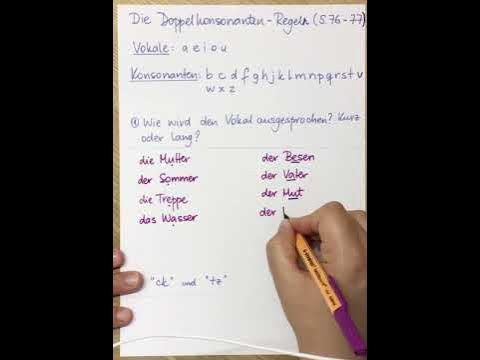 Die Doppelkonsonanten-Regeln (S.76-77)
Vokale: a e i o u
Konsonanten: b c d f g h j k l m n p q r s t v
w x z
① Wie wird den Vokal ausgesprochen? Kurz
oder Lang?
die Mutter
der Sommer
die Treppe
das Wasser
der Besen
der Vater
der Mut
der
"ck" und "tz"